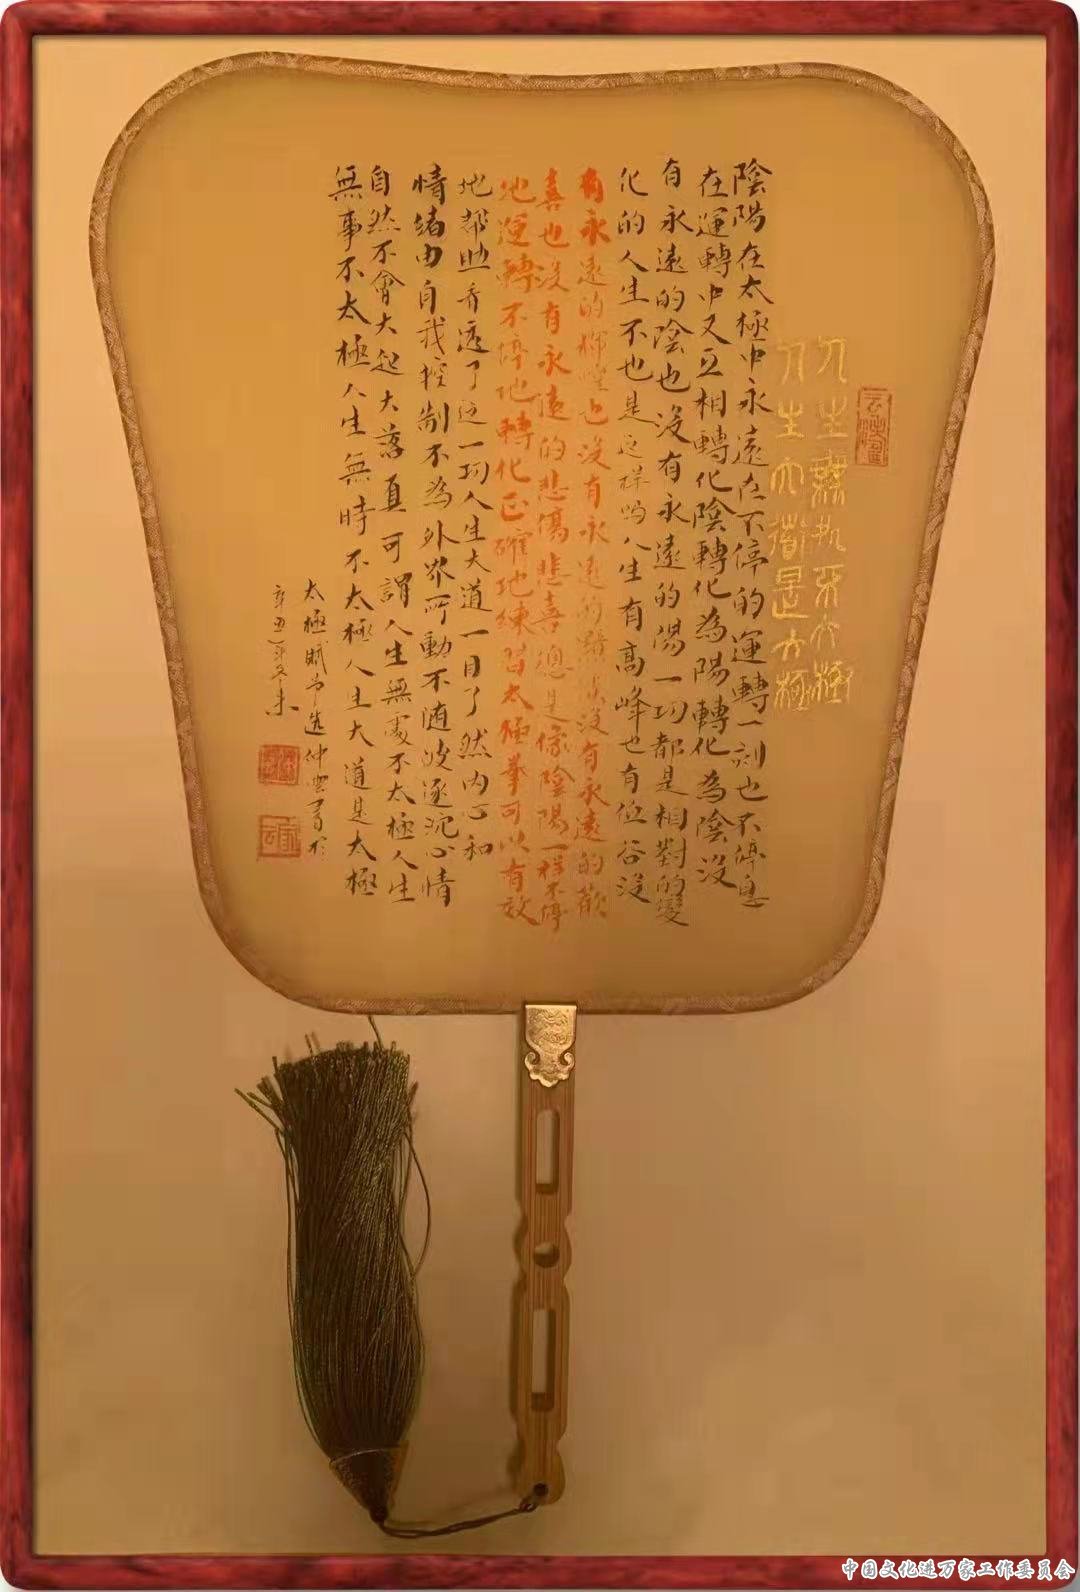 人生無処不太極
人生大道是太極
陰陽在太極中永遠在不停的運轉一刻也不停息
在運轉中又互相轉化陰轉化為陽轉化為陰沒
有永遠的陰也沒有永遠的陽一切都是相對的變
化的人生不也是這样吗人生有高峰也有低谷沒
有永遠的輝煌也沒有永遠的黯淡沒有永遠的歡
喜也沒有永遠的悲傷悲喜總是像陰陽一样不停
地運轉不停地轉化正確地練習太極拳可以有效
地帮助看透了这一切人生大道一目了然内心和
情緒由自我控制不為外界所動不随波逐流心情
自然不會大起大落真可謂人生無處不太極人生
無事不太極人生無時不太極人生大道是太極
太極賦節选仲雲書於
辛丑年冬末
中国文化进万家工作委员会